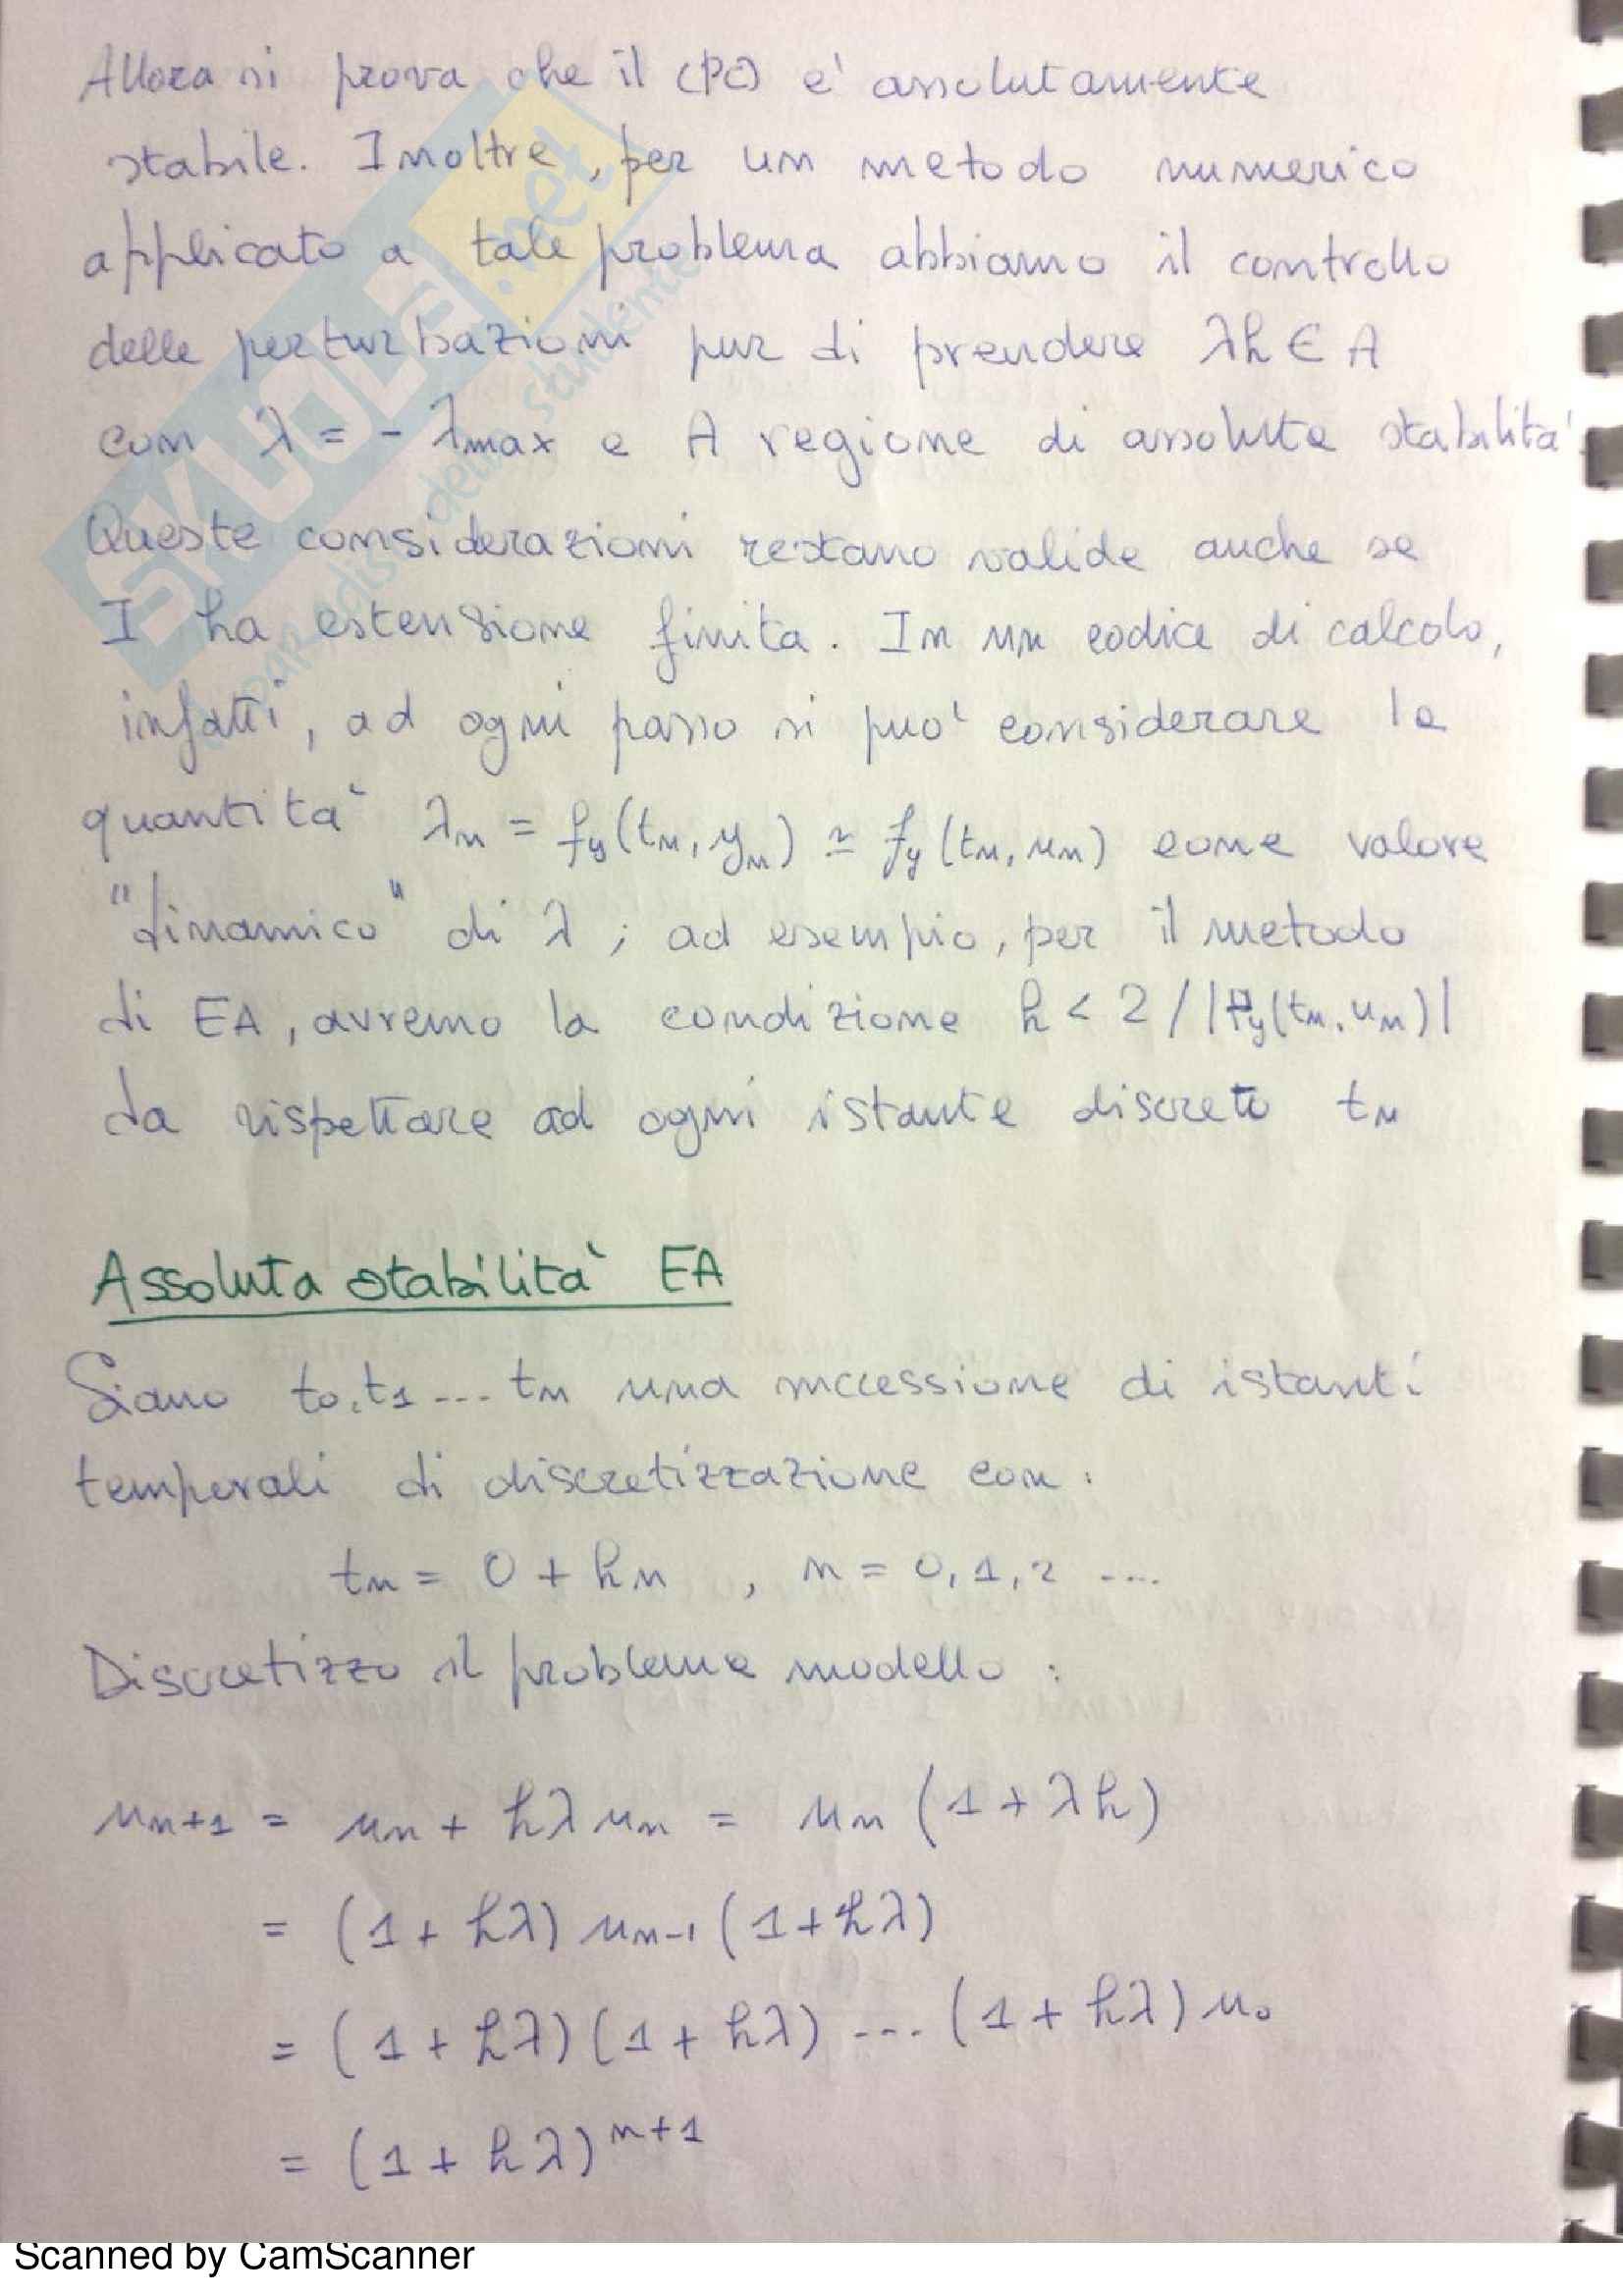 Allora si prova che il (PC) e' assolutamente
stabile. Inoltre, per un metodo numerico
applicato a tale problema abbiamo il controllo
delle perturbazioni pur di prendere λh ∈ A
con λ = - λmax e A regione di assoluta stabilita'.
Queste considerazioni restano valide anche se
I ha estensione finita. In un codice di calcolo,
infatti, ad ogni passo si puo' considerare la
quantita' λn = fy(tn, yn) ≃ fy(tn, un) come valore
"dinamico" di λ ; ad esempio, per il metodo
di EA, avremo la condizione h < 2/|fy(tn, un)|
da rispettare ad ogni istante discreto tn
Assoluta stabilita' EA
Siano t0, t1 ... tn una successione di istanti
temporali di discretizzazione con:
tn = 0 + hn , n = 0, 1, 2 ....
Discretizzo il problema modello :
un+1 = un + hλun = un (1 + λh)
= (1 + hλ) un-1 (1 + hλ)
= (1 + hλ)(1 + hλ) .... (1 + hλ) u0
= (1 + hλ)^n+1
SKUOLA.net
dello studente
Scanned by CamScanner